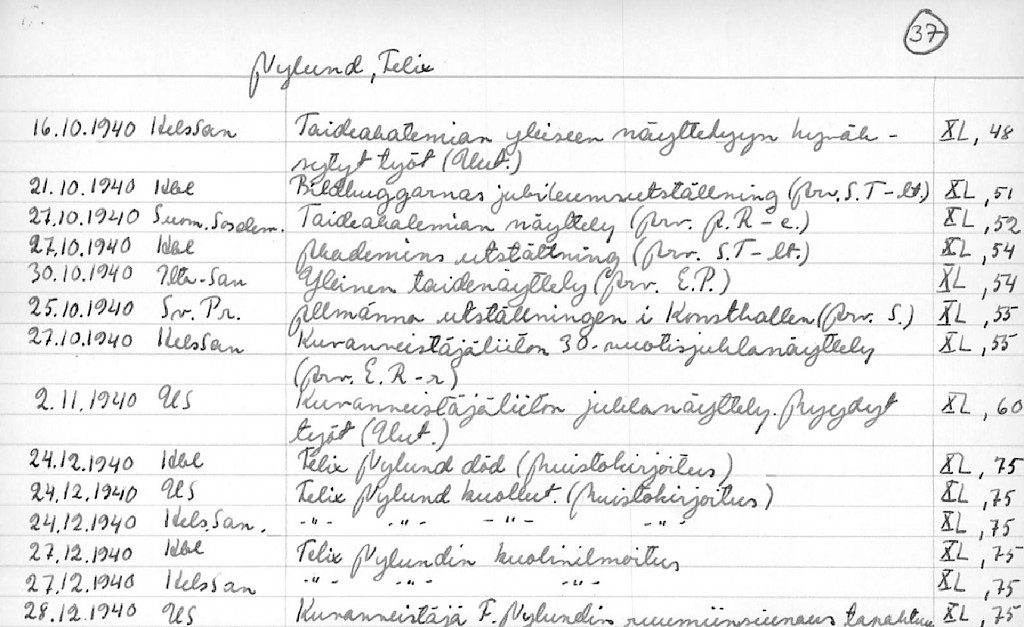 37
Nylund, Felix
16.10.1940 HelsSan Taideakatemian yleiseen näyttelyyn hyväk- XL, 48
sytyt työt (Uut.)
21.10.1940 Hbl Bildhuggarnas jubileumsutställning (arv. S.T-lt.) XL, 51
27.10.1940 Suom.Sosdem. Taideakatemian näyttely (arv. A.R-e.) XL, 52
27.10.1940 Hbl Akademins utställning (arv. S.T-lt.) XL, 54
30.10.1940 Ilta-San Yleinen taidenäyttely (arv. E.P.) XL, 54
25.10.1940 Sv. Pr. Allmänna utställningen i Konsthallen (arv. S.) XL, 55
27.10.1940 HelsSan Kuvanveistäjäliiton 30-vuotisjuhlanäyttely XL, 55
(arv. E. R-r)
2.11.1940 US Kuvanveistäjäliiton juhlanäyttely. Myydyt XL, 60
työt (Uut.)
24.12.1940 Hbl Felix Nylund död (Muistokirjoitus) XL, 75
24.12.1940 US Felix Nylund kuollut. (Muistokirjoitus) XL, 75
24.12.1940 Hels.San. -"- -"- -"- -"- XL, 75
27.12.1940 Hbl Felix Nylundin kuolinilmoitus XL, 75
27.12.1940 HelsSan -"- -"- -"- XL, 75
28.12.1940 US Kuvanveistäjä F. Nylundin ruumiinsiunaus tapahtuu XL, 75